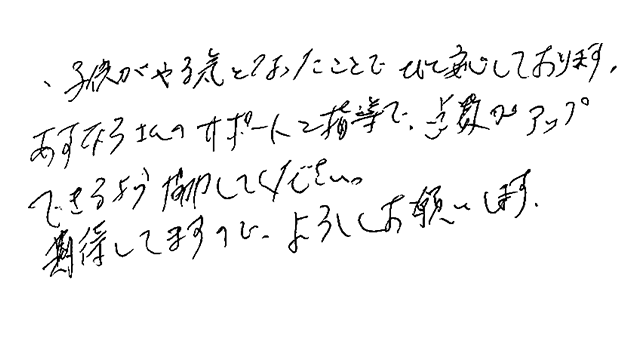 、子供がやる気となったことでひと安心しております。
あすなろさんのサポートと指導で、点数がアップ
できるよう協力してください。
期待してますので、よろしくお願いします。